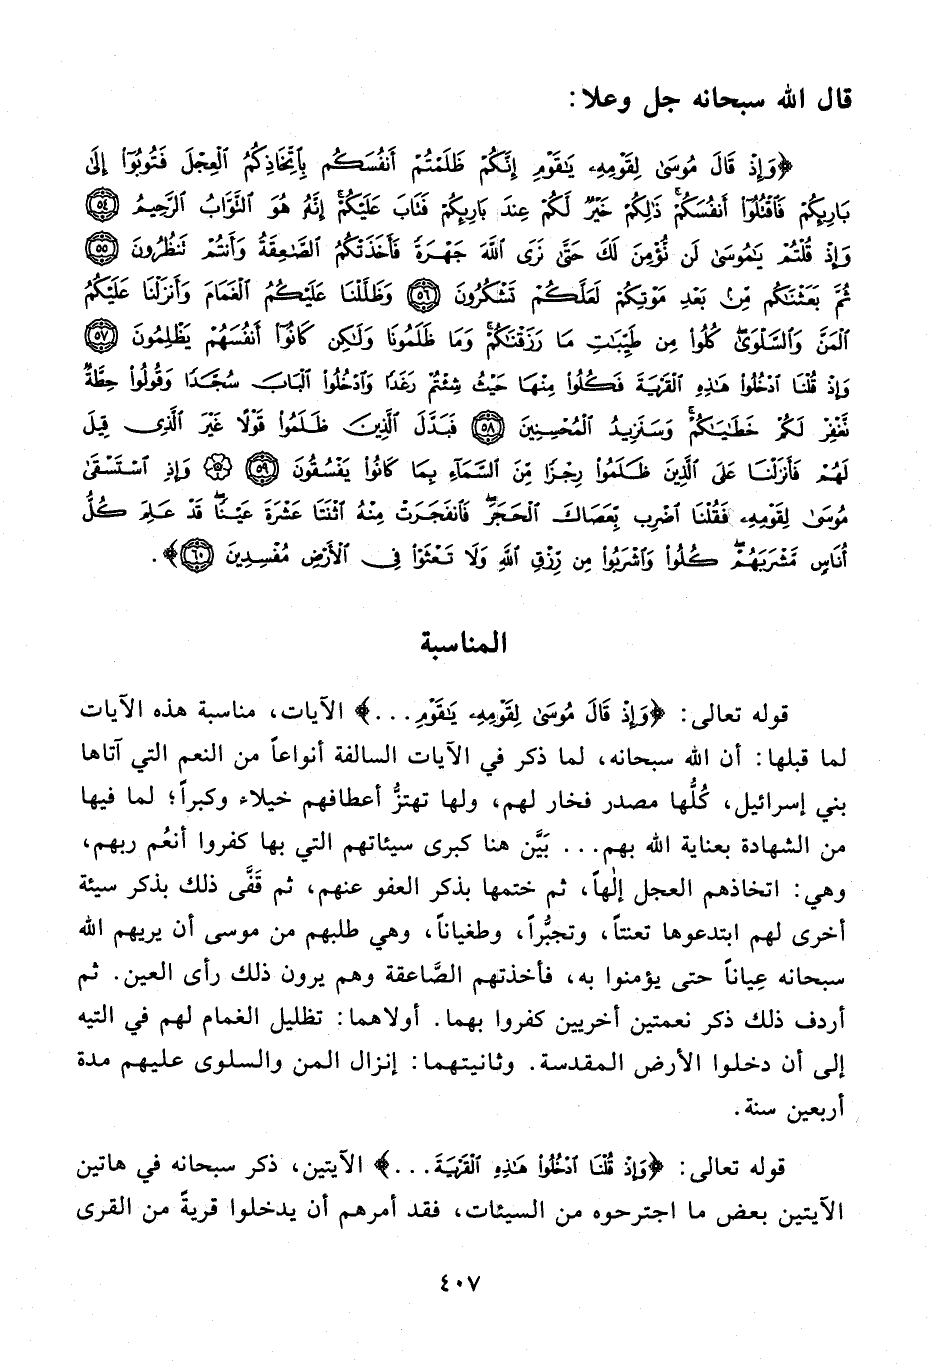 قال الله سبحانه جل وعلا:
﴿وَإِذْ قَالَ مُوسَىٰ لِقَوْمِهِۦ يَـٰقَوْمِ إِنَّكُمْ ظَلَمْتُمْ أَنفُسَكُم بِٱتِّخَاذِكُمُ ٱلْعِجْلَ فَتُوبُوٓا۟ إِلَىٰ
بَارِئِكُمْ فَٱقْتُلُوٓا۟ أَنفُسَكُمْ ذَٰلِكُمْ خَيْرٌ لَّكُمْ عِندَ بَارِئِكُمْ فَتَابَ عَلَيْكُمْ إِنَّهُۥ هُوَ ٱلتَّوَّابُ ٱلرَّحِيمُ ٥٤
وَإِذْ قُلْتُمْ يَـٰمُوسَىٰ لَن نُّؤْمِنَ لَكَ حَتَّىٰ نَرَى ٱللَّهَ جَهْرَةً فَأَخَذَتْكُمُ ٱلصَّـٰعِقَةُ وَأَنتُمْ تَنظُرُونَ ٥٥
ثُمَّ بَعَثْنَـٰكُم مِّنۢ بَعْدِ مَوْتِكُمْ لَعَلَّكُمْ تَشْكُرُونَ ٥٦ وَظَلَّلْنَا عَلَيْكُمُ ٱلْغَمَامَ وَأَنزَلْنَا عَلَيْكُمُ
ٱلْمَنَّ وَٱلسَّلْوَىٰ كُلُوا۟ مِن طَيِّبَـٰتِ مَا رَزَقْنَـٰكُمْ وَمَا ظَلَمُونَا وَلَـٰكِن كَانُوٓا۟ أَنفُسَهُمْ يَظْلِمُونَ ٥٧
وَإِذْ قُلْنَا ٱدْخُلُوا۟ هَـٰذِهِ ٱلْقَرْيَةَ فَكُلُوا۟ مِنْهَا حَيْثُ شِئْتُمْ رَغَدًا وَٱدْخُلُوا۟ ٱلْبَابَ سُجَّدًا وَقُولُوا۟ حِطَّةٌ
نَّغْفِرْ لَكُمْ خَطَـٰيَـٰكُمْ وَسَنَزِيدُ ٱلْمُحْسِنِينَ ٥٨ فَبَدَّلَ ٱلَّذِينَ ظَلَمُوا۟ قَوْلًا غَيْرَ ٱلَّذِى قِيلَ
لَهُمْ فَأَنزَلْنَا عَلَى ٱلَّذِينَ ظَلَمُوا۟ رِجْزًا مِّنَ ٱلسَّمَآءِ بِمَا كَانُوا۟ يَفْسُقُونَ ٥٩ ۞ وَإِذِ ٱسْتَسْقَىٰ
مُوسَىٰ لِقَوْمِهِۦ فَقُلْنَا ٱضْرِب بِّعَصَاكَ ٱلْحَجَرَ فَٱنفَجَرَتْ مِنْهُ ٱثْنَتَا عَشْرَةَ عَيْنًا قَدْ عَلِمَ كُلُّ
أُنَاسٍ مَّشْرَبَهُمْ كُلُوا۟ وَٱشْرَبُوا۟ مِن رِّزْقِ ٱللَّهِ وَلَا تَعْثَوْا۟ فِى ٱلْأَرْضِ مُفْسِدِينَ ٦٠﴾.
المناسبة
قوله تعالى: ﴿وَإِذْ قَالَ مُوسَىٰ لِقَوْمِهِۦ يَـٰقَوْمِ...﴾ الآيات، مناسبة هذه الآيات
لما قبلها: أن الله سبحانه، لما ذكر في الآيات السالفة أنواعاً من النعم التي آتاها
بني إسرائيل، كُلُّها مصدر فخار لهم، ولها تهتزُّ أعطافهم خيلاء وكبراً؛ لما فيها
من الشهادة بعناية الله بهم... بَيَّن هنا كبرى سيئاتهم التي بها كفروا أنعُم ربهم،
وهي: اتخاذهم العجل إلٰهاً، ثم ختمها بذكر العفو عنهم، ثم قَفَّى ذلك بذكر سيئة
أخرى لهم ابتدعوها تعنتاً، وتجبُّراً، وطغياناً، وهي طلبهم من موسى أن يريهم الله
سبحانه عِياناً حتى يؤمنوا به، فأخذتهم الصَّاعقة وهم يرون ذلك رأى العين. ثم
أردف ذلك ذكر نعمتين أخريين كفروا بهما. أولاهما: تظليل الغمام لهم في التيه
إلى أن دخلوا الأرض المقدسة. وثانيتهما: إنزال المن والسلوى عليهم مدة
أربعين سنة.
قوله تعالى: ﴿وَإِذْ قُلْنَا ٱدْخُلُوا۟ هَـٰذِهِ ٱلْقَرْيَةَ...﴾ الآيتين، ذكر سبحانه في هاتين
الآيتين بعض ما اجترحوه من السيئات، فقد أمرهم أن يدخلوا قريةً من القرى
٤٠٧